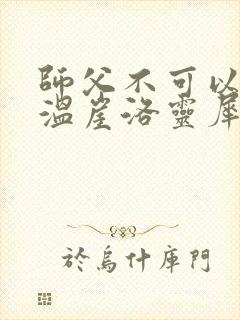 師父不可以
溫崖洛靈犀
於烏什庫門